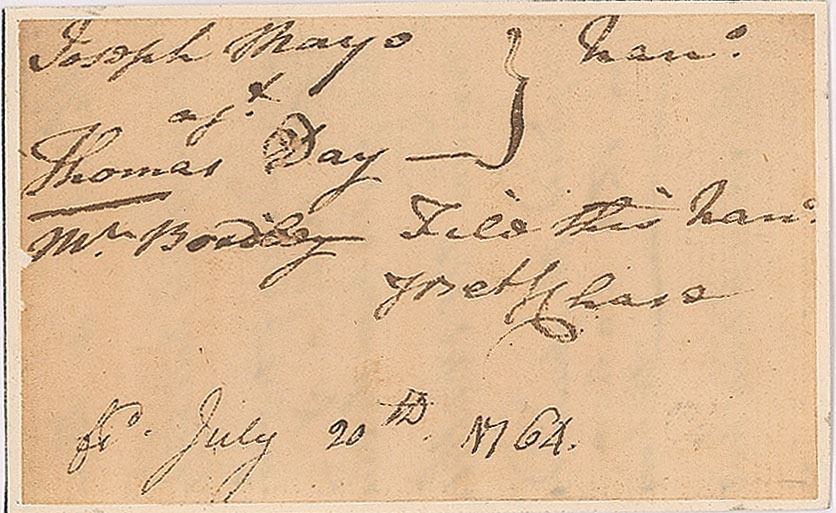 Joseph Mayo } Narr.
agt.
Thomas Day —
Mr. Bordley File this Narr.
Chase
fd. July 20th 1764.